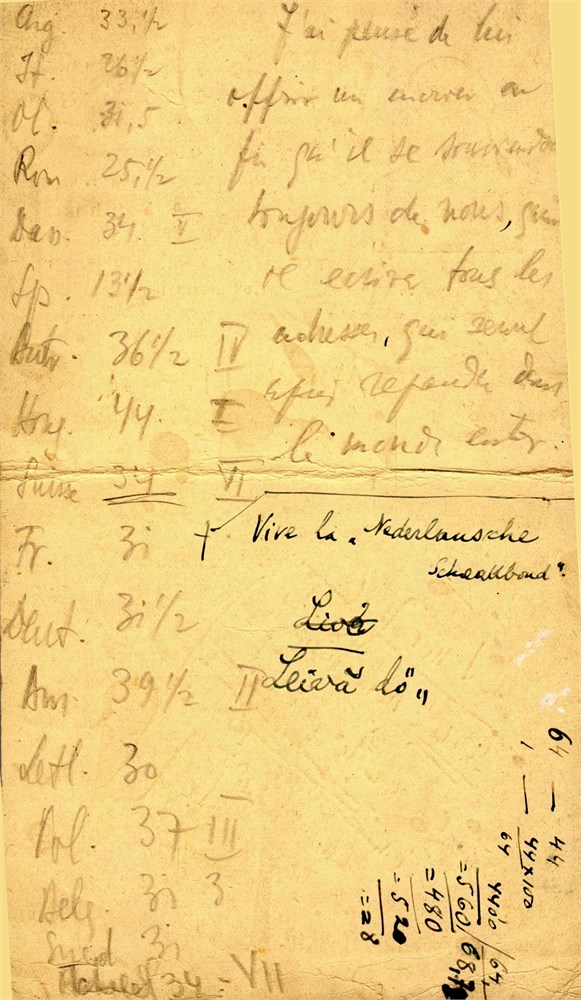 Arg. 33,1/2
It. 26 1/2
Ol. 31,5
Rou 25,1/2
Dan. 34 V
Sp. 13 1/2
Autr. 36 1/2 IV
Hong. 44. I
Suisse 34 VI
Fr. 31
Deut. 31 1/2
Am. 39 1/2 II
Letl. 30
Pol. 37 III
Belg. 31 3
Sued 31
34 - VII
J'ai pensé de lui
offrir un encrier en
fin qu'il se souvienne
toujours de nous, quand
il ecrira tous les
adresses, qui seront
repandu dans
le monde entier.
Vive la „Nederlansche
Schaakbond".
Leivă dö"
64 — 44
1 —
44x100
64
4400 / 64
=560 / 68,
=480
=520
=28